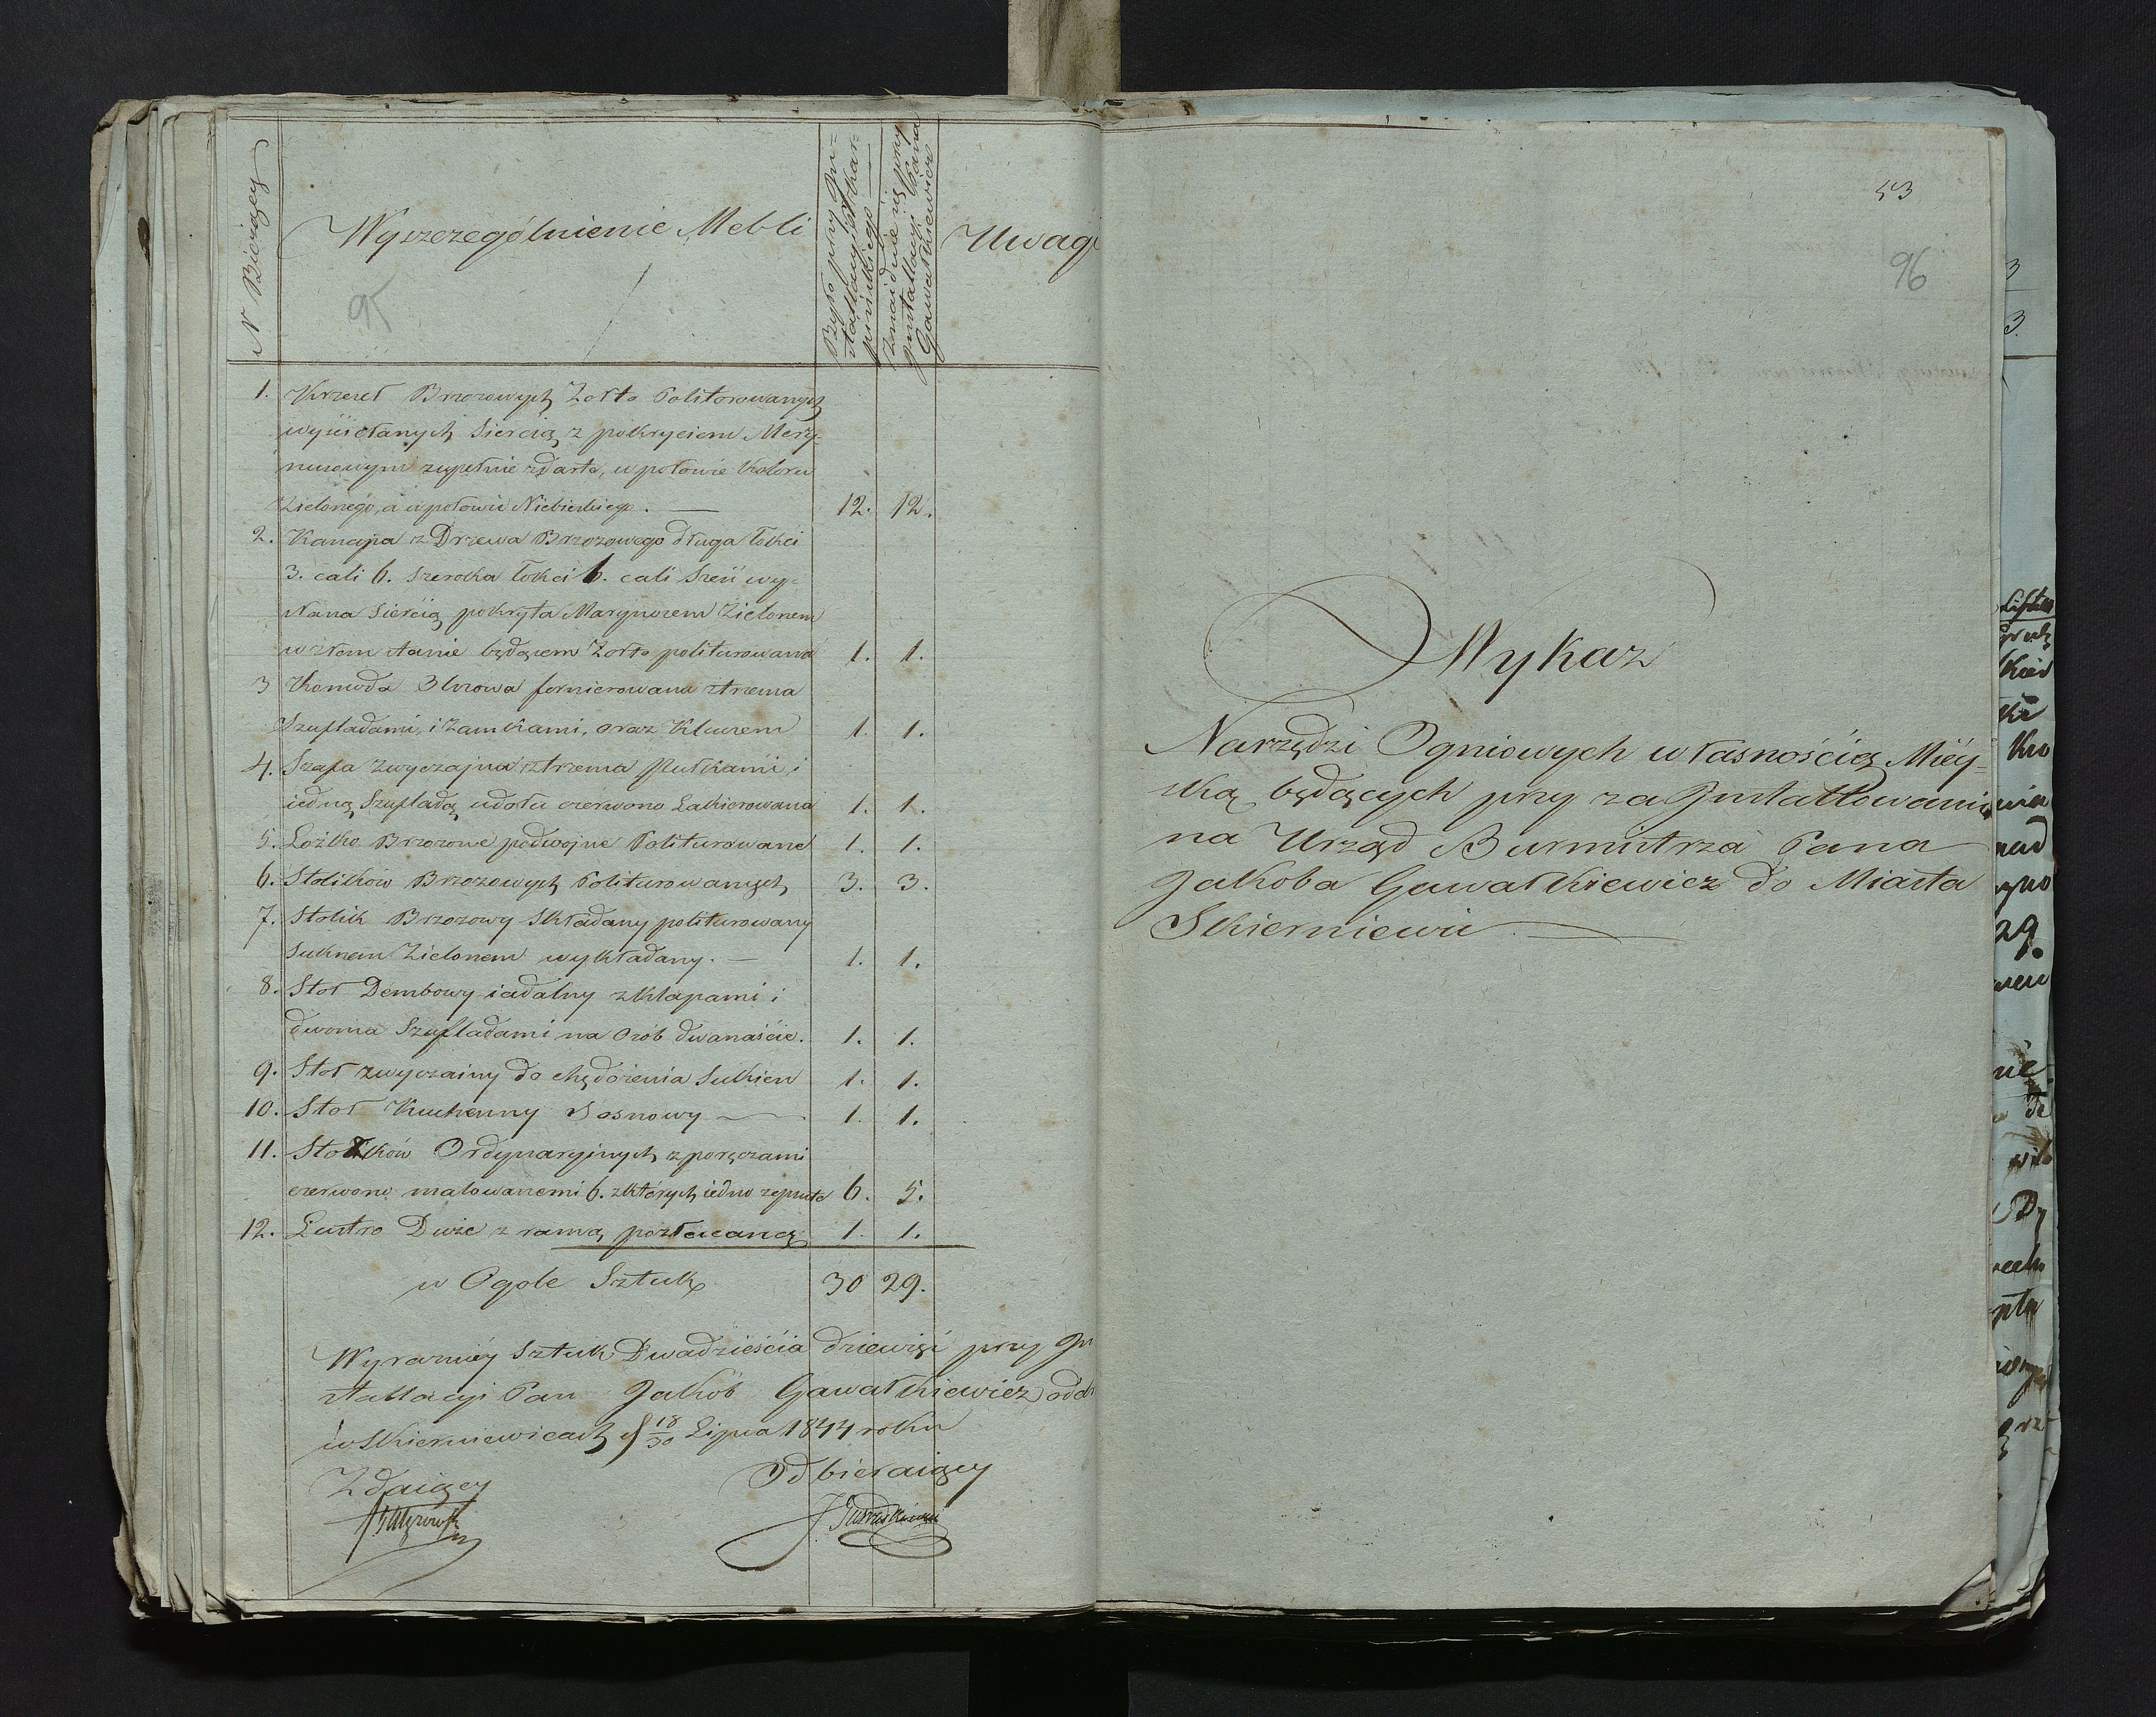 N Bieżący
Wyszczegolnienie Mebli
Było przy In-
stallacyi
Znaiduie się przy
Installacyi Pana
Gawałkiewicz
Uwagi
95
1. Krzeseł Brzozowych Zołto Politorowanych
wyściełanych Sierścią z pokryciem Mery-
nusowym zupełnie zdarte, w połowie Koloru
Zielonego, a w połowie Niebieskiego. — 12. 12.
2. Kanapa z Drzewa Brzozowego długa łokci
3. cali 6. szeroka łokci 1. cali sześć wy-
słana Sierścią pokryta Marynosem Zielonem
w złem stanie będącem Zołto politurowana 1. 1.
3 Komoda Olszowa fornierowana z trzema
Szufladami, i Zamkami, oraz Kluczem 1. 1.
4. Szafa zwyczajna z trzema Pułkami i
iedną Szufladą u dołu czerwono Lakierowana 1. 1.
5. Łożko Brzozowe podwojne Politurowane 1. 1.
6. Stolików Brzozowych Politurowanych 3. 3.
7. Stolik Brzozowy Składany politurowany
Suknem Zielonem wykładany. — 1. 1.
8. Stoł Dembowy iadalny z klapami i
dwoma Szufladami na Osób dwanaście. 1. 1.
9. Stoł zwyczainy do chędożenia Sukien 1. 1.
10. Stoł Kuchenny Sosnowy — 1. 1.
11. Stołków Ordynaryinych z poręczami
czerwono malowanemi 6. z których iedno zepsute 6. 5.
12. Lustro Duże z ramą pozłacaną 1. 1.
w Ogole Sztuk 30 29.
Wyrazniey Sztuk Dwadzieścia dziewięć przy In
stallacyi Pan Jakób Gawałkiewicz odda
w Skierniewicach d 18/30 Lipca 1844 roku
Zdaiący
Odbieraiący
53
96
Wykaz
Narzędzi Ogniowych własnością Miey-
ską będących przy za Installowaniu
na Urząd Burmistrza Pana
Jakoba Gawałkiewicz do Miasta
Skierniewic —